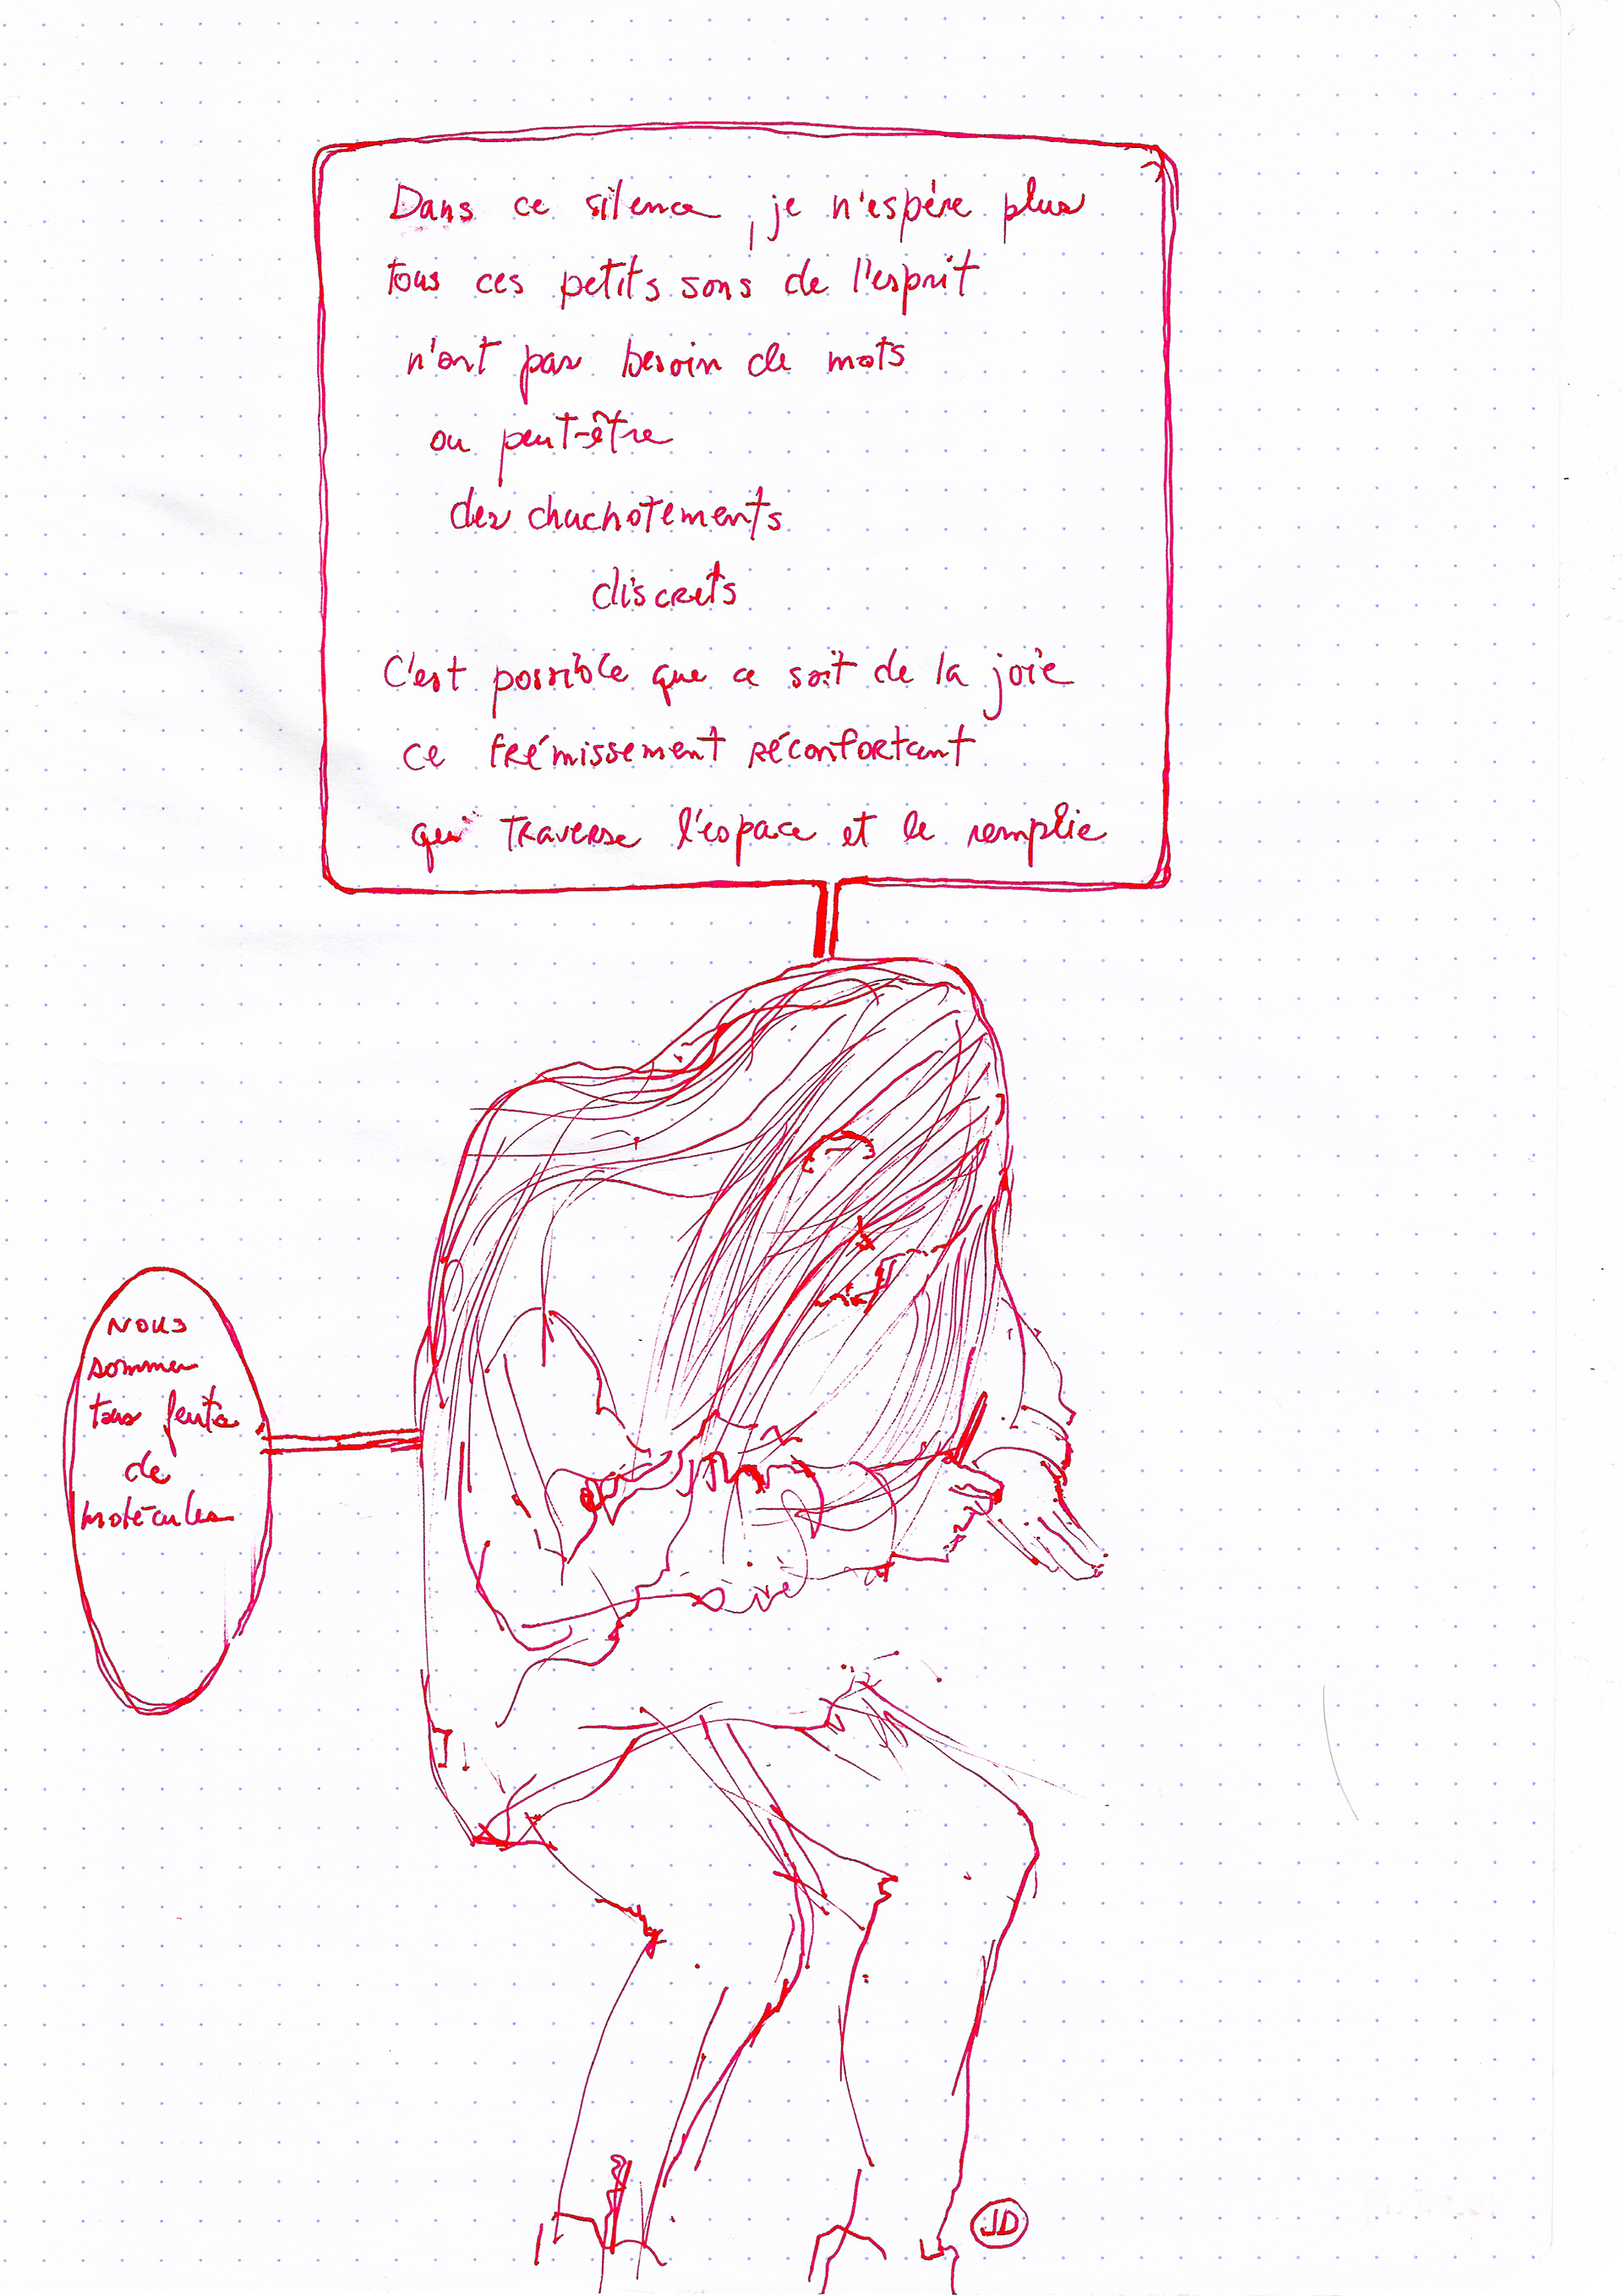 Dans ce silence, je n'espère plus
tous ces petits sons de l'esprit
n'ont pas besoin de mots
ou peut-être
des chuchotements
discrets
C'est possible que ce soit de la joie
ce frémissement réconfortant
qui traverse l'espace et le remplie
Nous
sommes
tous
de
molécules
JD